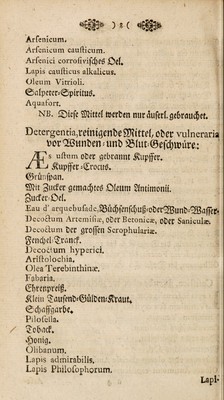 ) 2 (
Arsenicum.
Arsenicum causticum.
Arsenici corrosivisches Oel.
Lapis causticus alkalicus.
Oleum Vitrioli.
Salpeter-Spiritus.
Aquafort.
NB. Diese Mittel werden nur äuserl. gebrauchet.
Detergentia, reinigende Mittel, oder vulneraria
vor Wunden- und Blut-Geschwüre:
Æs ustum oder gebrannt Kupffer.
Kupffer-Crocus.
Grünspan.
Mit Zucker gemachtes Oleum Antimonii.
Zucker-Oel.
Eau d'arquebusade. Büchsenschuß- oder Wund-Wasser.
Decoctum Artemisiæ, oder Betonicæ, oder Saniculæ.
Decoctum der grossen Scrophulariæ.
Fenchel-Tranck.
Decoctum hyperici.
Aristolochia.
Olea Terebinthinæ.
Fabaria.
Ehrenpreiß.
Klein Tausend-Gülden-Kraut.
Schaffgarbe.
Pilosella.
Toback.
Honig.
Olibanum.
Lapis admirabilis.
Lapis Philosophorum.
Lapi-